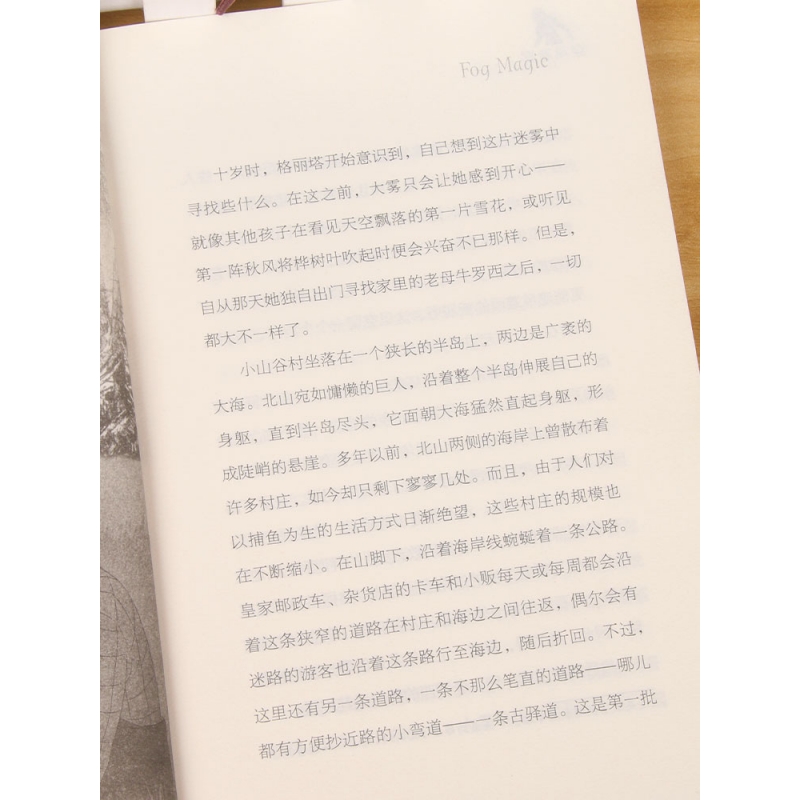 Fog Magic
十岁时，格丽塔开始意识到，自己想到这片迷雾中
寻找些什么。在这之前，大雾只会让她感到开心——
就像其他孩子在看见天空飘落的第一片雪花，或听见
第一阵秋风将桦树叶吹起时便会兴奋不已那样。但是，
自从那天她独自出门寻找家里的老母牛罗西之后，一切
都大不一样了。
小山谷村坐落在一个狭长的半岛上，两边是广袤的
大海。北山宛如慵懒的巨人，沿着整个半岛伸展自己的
身躯，直到半岛尽头，它面朝大海猛然直起身躯，形
成陡峭的悬崖。多年以前，北山两侧的海岸上曾散布着
许多村庄，如今却只剩下寥寥几处。而且，由于人们对
以捕鱼为生的生活方式日渐绝望，这些村庄的规模也
在不断缩小。在山脚下，沿着海岸线蜿蜒着一条公路。
皇家邮政车、杂货店的卡车和小贩每天或每周都会沿
着这条狭窄的道路在村庄和海边之间往返，偶尔会有
迷路的游客也沿着这条路行至海边，随后折回。不过，
这里还有另一条道路，一条不那么笔直的道路——哪儿
都有方便抄近路的小弯道——一条古驿道。这是第一批